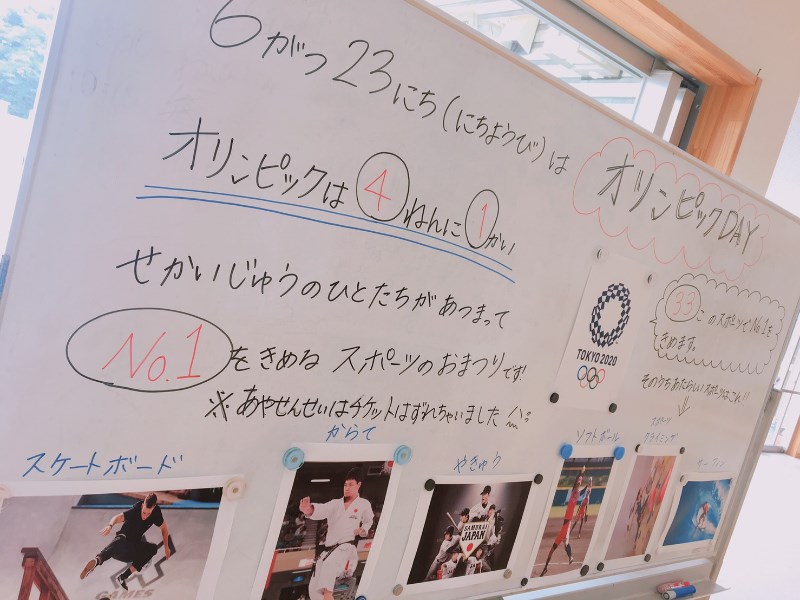 6がつ23にち(にちようび)は
オリンピックDAY
オリンピックは4ねんに1かい
せかいじゅうのひとたちがあつまって
No.1をきめるスポーツのおまつりです!
※あやせんせいはチケットはずれちゃいました
TOKYO 2020
33このスポーツでNo.1を
きめます。
そのうちあたらしいスポーツはこれ!!
スケートボード
からて
やきゅう
ソフトボール
スポーツ
クライミング
サーフィン
GAMES
SAMURAI
JAPAN